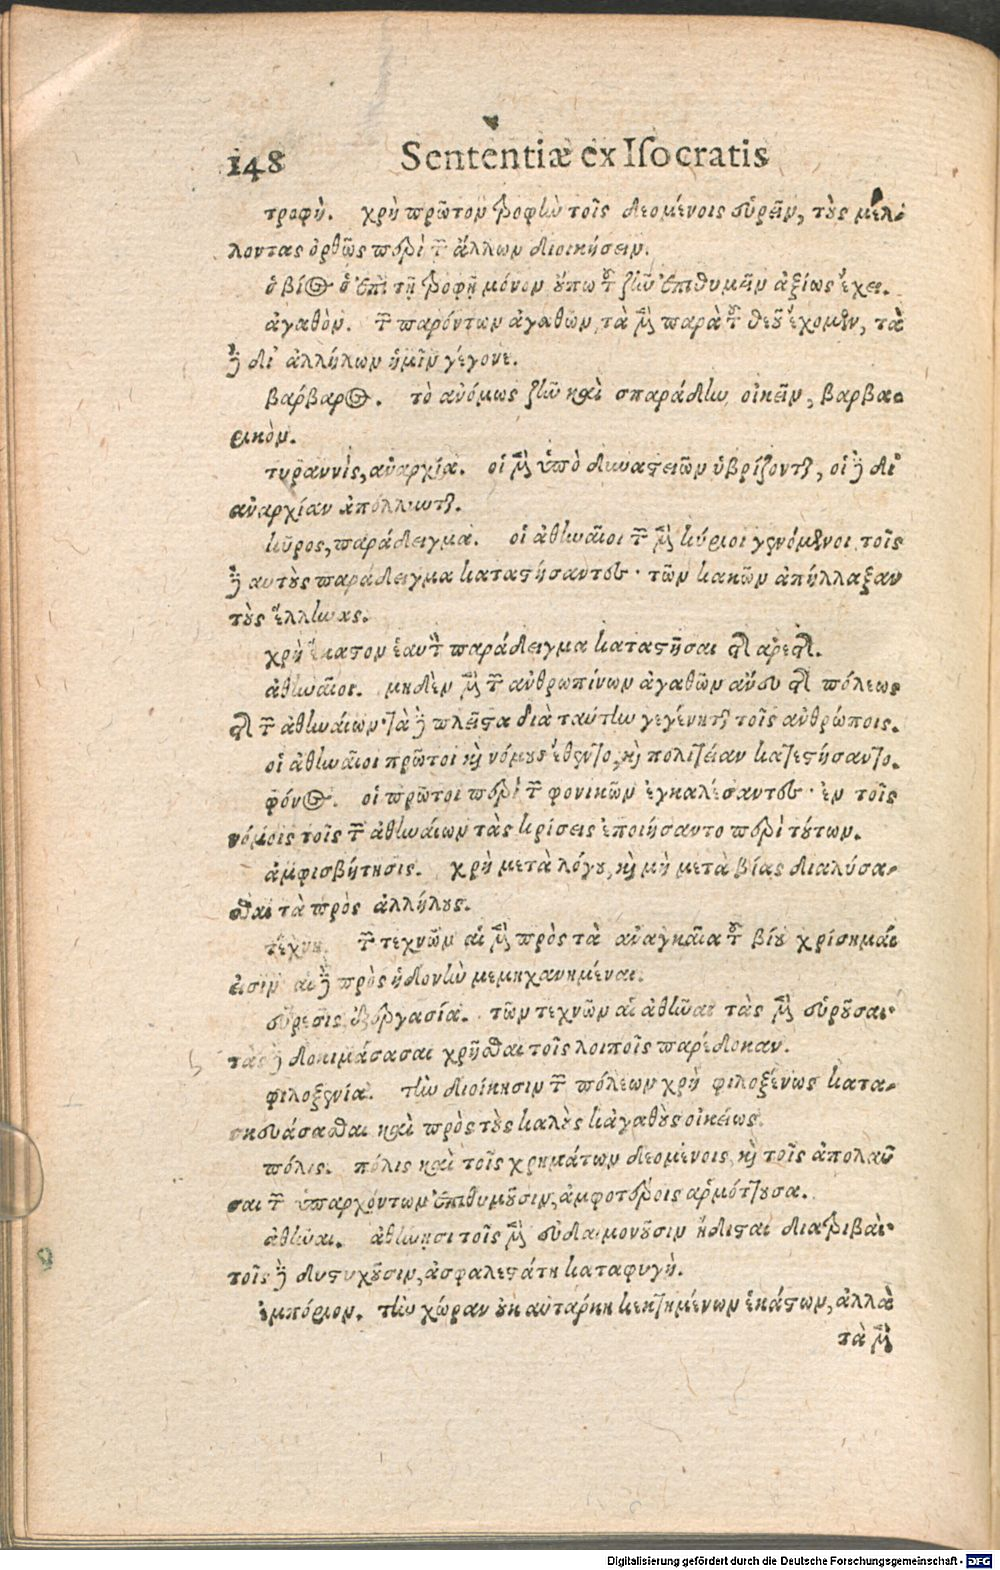 148 Sententiæ ex Isocratis
τροφή. χρὴ πρῶτον τροφὴν τοῖς δεομένοις εὑρεῖν, τοὺς μέλ-
λοντας ὀρθῶς περὶ τῶν ἄλλων διοικήσειν.
ὁ βίος ὁ ἐπὶ τῇ τροφῇ μόνον οὔπω τοῦ ζῆν ἐπιθυμεῖν ἀξίως ἔχει.
ἀγαθὸν. τῶν παρόντων ἀγαθῶν τὰ μὲν παρὰ τοῦ θεοῦ ἔχομεν, τὰ
δὲ δι' ἀλλήλων ἡμῖν γέγονε.
βάρβαρος. τὸ ἀνόμως ζῆν καὶ σποράδην οἰκεῖν, βαρβα-
ρικὸν.
τυραννὶς, ἀναρχία. οἱ μὲν ὑπὸ δυναστειῶν ὑβρίζονται, οἱ δὲ δι'
ἀναρχίαν ἀπόλλυνται.
κῦρος, παράδειγμα. οἱ ἀθηναῖοι τῶν μὲν κύριοι γενόμενοι τοῖς
δὲ αὑτοὺς παράδειγμα καταστήσαντες· τῶν κακῶν ἀπήλλαξαν
τοὺς ἕλληνας.
χρὴ ἕκαστον ἑαυτὸν παράδειγμα καταστῆσαι τῆς ἀρετῆς.
ἀθηναῖοι. μηδὲν μὲν τῶν ἀνθρωπίνων ἀγαθῶν ἄνευ τῆς πόλεως
τῆς τῶν ἀθηναίων· τὰ δὲ πλεῖστα διὰ ταύτην γεγένηται τοῖς ἀνθρώποις.
οἱ ἀθηναῖοι πρῶτοι καὶ νόμους ἔθεντο, καὶ πολιτείαν κατεστήσαντο.
φόνος. οἱ πρῶτοι περὶ τῶν φονικῶν ἐγκαλέσαντες· ἐν τοῖς
νόμοις τοῖς τῶν ἀθηναίων τὰς κρίσεις ἐποιήσαντο περὶ τούτων.
ἀμφισβήτησις. χρὴ μετὰ λόγου, καὶ μὴ μετὰ βίας διαλύσα-
σθαι τὰ πρὸς ἀλλήλους.
τέχνη. τῶν τεχνῶν αἱ μὲν πρὸς τὰ ἀναγκαῖα τοῦ βίου χρίσημαί
εἰσιν αἱ δὲ πρὸς ἡδονὴν μεμηχανημέναι.
εὕρεσις, ἐξεργασία. τῶν τεχνῶν αἱ ἀθῆναι τὰς μὲν εὑροῦσαι·
τὰς δὲ δοκιμάσασαι χρῆσθαι τοῖς λοιποῖς παρέδοκαν.
φιλοξενία. τὴν διοίκησιν τῶν πόλεων χρὴ φιλοξένως κατα-
σκευάσασθαι καὶ πρὸς τοὺς καλοὺς κἀγαθοὺς οἰκείως.
πόλις. πόλις καὶ τοῖς χρημάτων δεομένοις, καὶ τοῖς ἀπολαῦ
σαι τῶν ὑπαρχόντων ἐπιθυμοῦσιν, ἀμφοτέροις ἁρμόττουσα.
ἀθῆναι. ἀθήνησι τοῖς μὲν εὐδαιμονοῦσιν ἥδισται διατριβαὶ·
τοῖς δὲ δυστυχοῦσιν, ἀσφαλεστάτη καταφυγή.
ἐμπόριον. τὴν χώραν οὐκ αὐτάρκη κεκτημένων ἑκάστων, ἀλλὰ
τὰ μὲν
Digitalisierung gefördert durch die Deutsche Forschungsgemeinschaft - DFG